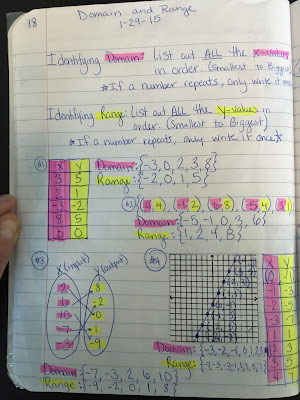 18
Domain and Range
1-29-15
Identifying Domain: List out ALL the x-values
in order. (Smallest to Biggest)
*If a number repeats, only write it once
Identifying Range: List out ALL the y-values in
order. (Smallest to Biggest)
*If a number repeats, only write it once*
#1
x y
3 5
2 1
-3 -2
8 5
0 0
Domain: {-3,0,2,3,8}
Range: {-2,0,1,5}
#2
Domain: {-5,-1,0,3,6}
Range: {1,2,4,8}
#3
x (input) y (output)
2 8
6 -2
10 0
-7 1
-3 -9
Domain: {-7,-3,2,6,10}
Range: {-9,-2,0,1,8}
#4
x y
Domain:
Range: